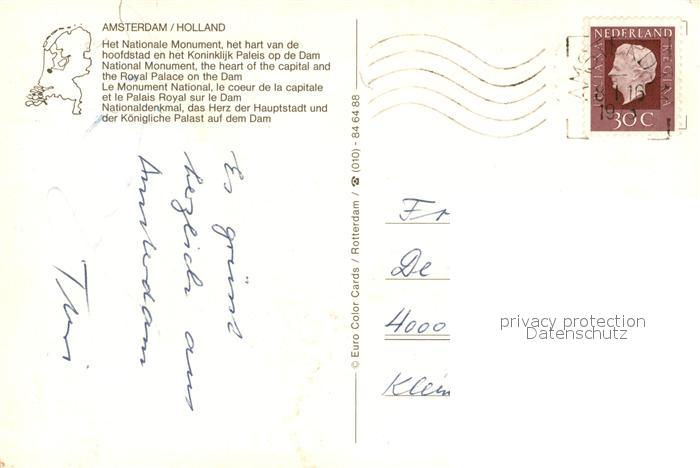 AMSTERDAM / HOLLAND
Het Nationale Monument, het hart van de
hoofdstad en het Koninklijk Paleis op de Dam
National Monument, the heart of the capital and
the Royal Palace on the Dam
Le Monument National, le coeur de la capitale
et le Palais Royal sur le Dam
Nationaldenkmal, das Herz der Hauptstadt und
der Königliche Palast auf dem Dam
Es grüßt
herzlich aus
Amsterdam
© Euro Color Cards / Rotterdam / ☎ (010) - 84 64 88
NEDERLAND
JULIANA
REGINA
30 C
Fr
De
4000
Klein
privacy protection
Datenschutz